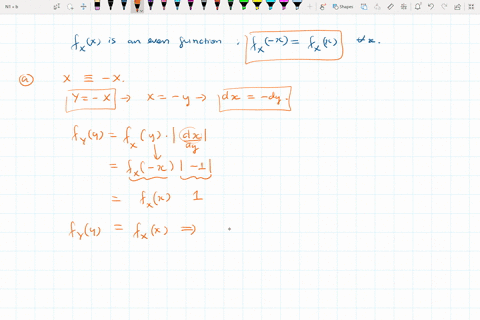 N1 = 6
Shapes
f_X(x) is an even function : f_X(-x) = f_X(x) ∀x.
(a) X ≡ -X.
Y = -X → x = -y → dx = -dy.
f_Y(y) = f_X(y) · |dx/dy|
= f_X(-x) |-1|
= f_X(x) 1
f_Y(y) = f_X(x) ⇒